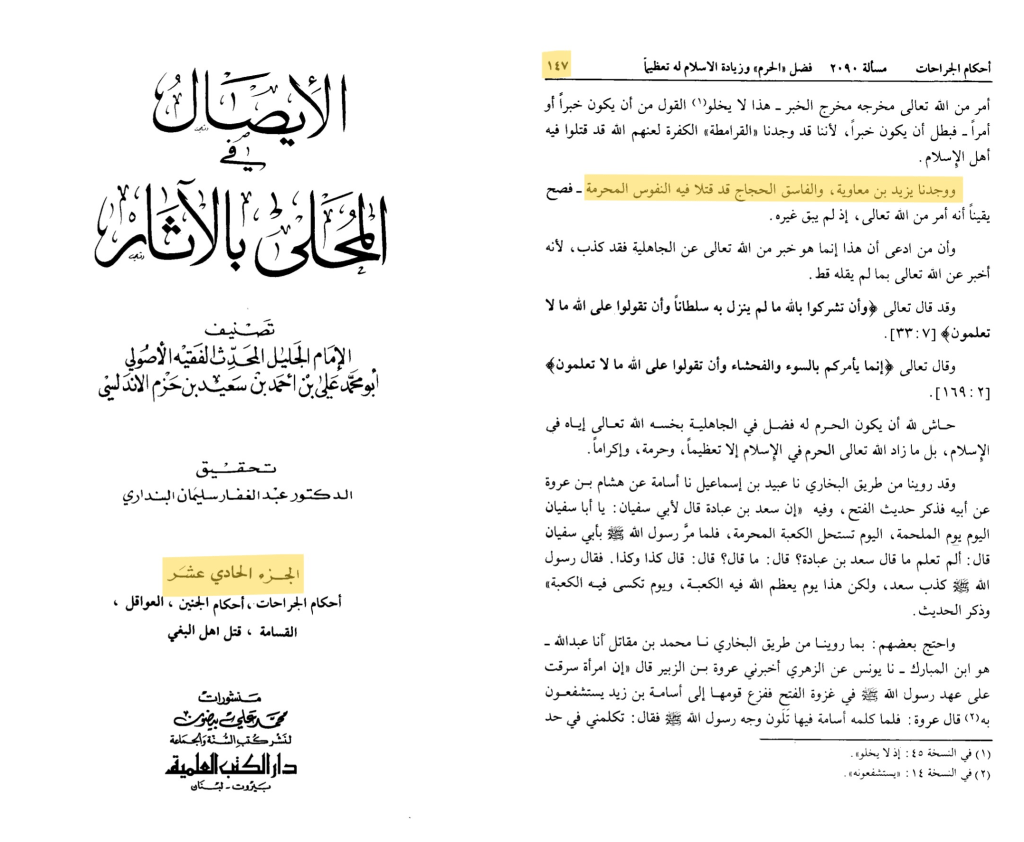 الإيصال
في
المحلى بالآثار
تصنيف
الإمام الجليل المحدث الفقيه الأصولي
أبو محمد علي بن أحمد بن سعيد بن حزم الاندلسي
تحقيق
الدكتور عبد الغفار سليمان البنداري
الجزء الحادي عشر
أحكام الجراحات، أحكام الجنين، العواقل،
القسامة، قتل اهل البغي
منشورات
محمد علي بيضون
لنشر كتب السنة والجماعة
دار الكتب العلمية
بيروت - لبنان
أحكام الجراحات مسألة ٢٠٩٠ فضل «الحرم» وزيادة الاسلام له تعظيماً ١٤٧
أمر من الله تعالى مخرجه مخرج الخبر ـ هذا لا يخلو(١) القول من أن يكون خبراً أو
أمراً ـ فبطل أن يكون خبراً، لأننا قد وجدنا «القرامطة» الكفرة لعنهم الله قد قتلوا فيه
أهل الإسلام.
ووجدنا يزيد بن معاوية، والفاسق الحجاج قد قتلا فيه النفوس المحرمة ـ فصح
يقيناً أنه أمر من الله تعالى، إذ لم يبق غيره.
وأن من ادعى أن هذا إنما هو خبر من الله تعالى عن الجاهلية فقد كذب، لأنه
أخبر عن الله تعالى بما لم يقله قط.
وقد قال تعالى ﴿وأن تشركوا بالله ما لم ينزل به سلطاناً وأن تقولوا على الله ما لا
تعلمون﴾ [٧ : ٣٣].
وقال تعالى ﴿إنما يأمركم بالسوء والفحشاء وأن تقولوا على الله ما لا تعلمون﴾
[٢ : ١٦٩].
حاش لله أن يكون الحرم له فضل في الجاهلية بخسه الله تعالى إياه في
الإسلام، بل ما زاد الله تعالى الحرم في الإسلام إلا تعظيماً، وحرمة، وإكراماً.
وقد روينا من طريق البخاري نا عبيد بن إسماعيل نا أسامة عن هشام بن عروة
عن أبيه فذكر حديث الفتح، وفيه «إن سعد بن عبادة قال لأبي سفيان: يا أبا سفيان
اليوم يوم الملحمة، اليوم تستحل الكعبة المحرمة، فلما مرَّ رسول الله ﷺ بأبي سفيان
قال: ألم تعلم ما قال سعد بن عبادة؟ قال: ما قال؟ قال: قال كذا وكذا. فقال رسول
الله ﷺ كذب سعد، ولكن هذا يوم يعظم الله فيه الكعبة، ويوم تكسى فيه الكعبة»
وذكر الحديث.
واحتج بعضهم: بما روينا من طريق البخاري نا محمد بن مقاتل أنا عبدالله ـ
هو ابن المبارك ـ نا يونس عن الزهري أخبرني عروة بن الزبير قال «إن امرأة سرقت
على عهد رسول الله ﷺ في غزوة الفتح ففزع قومها إلى أسامة بن زيد يستشفعون
به(٢) قال عروة: فلما كلمه أسامة فيها تَلَون وجه رسول الله ﷺ فقال: تكلمني في حد
(١) في النسخة ٤٥ : إذ لا يخلو».
(٢) في النسخة ١٤ : «يستشفعونه».